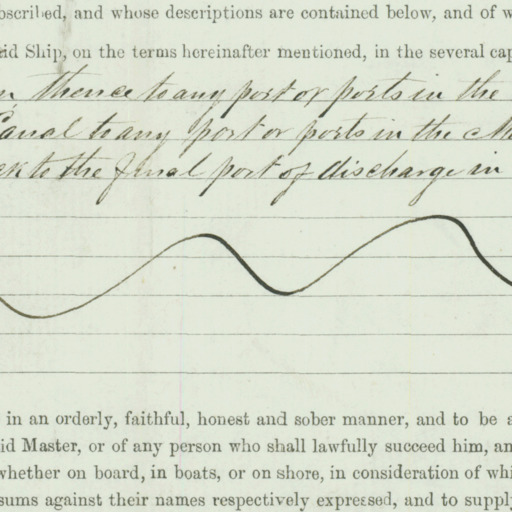 bscribed, and whose descriptions are contained below, and of w
id Ship, on the terms hereinafter mentioned, in the several cap
thence to any port or ports in the
Canal to any port or ports in the Me
ck to the final port of discharge in
in an orderly, faithful, honest and sober manner, and to be a
id Master, or of any person who shall lawfully succeed him, an
whether on board, in boats, or on shore, in consideration of whi
sums against their names respectively expressed, and to supply